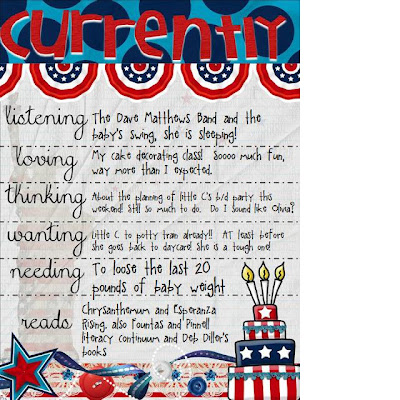 currently
listening
The Dave Matthews Band and the
baby's swing, she is sleeping!
loving
My cake decorating class! Soooo much fun,
way more than I expected.
thinking
About the planning of little C's b/d party this
weekend! Still so much to do. Do I sound like Olivia?
wanting
Little C to potty train already!! AT least before
she goes back to daycare! She is a tough one!
needing
To loose the last 20
pounds of baby weight
reads
Chrysanthemum and Esperanza
Rising, also Fountas and Pinnell
literacy continuum and Deb Diller's
books